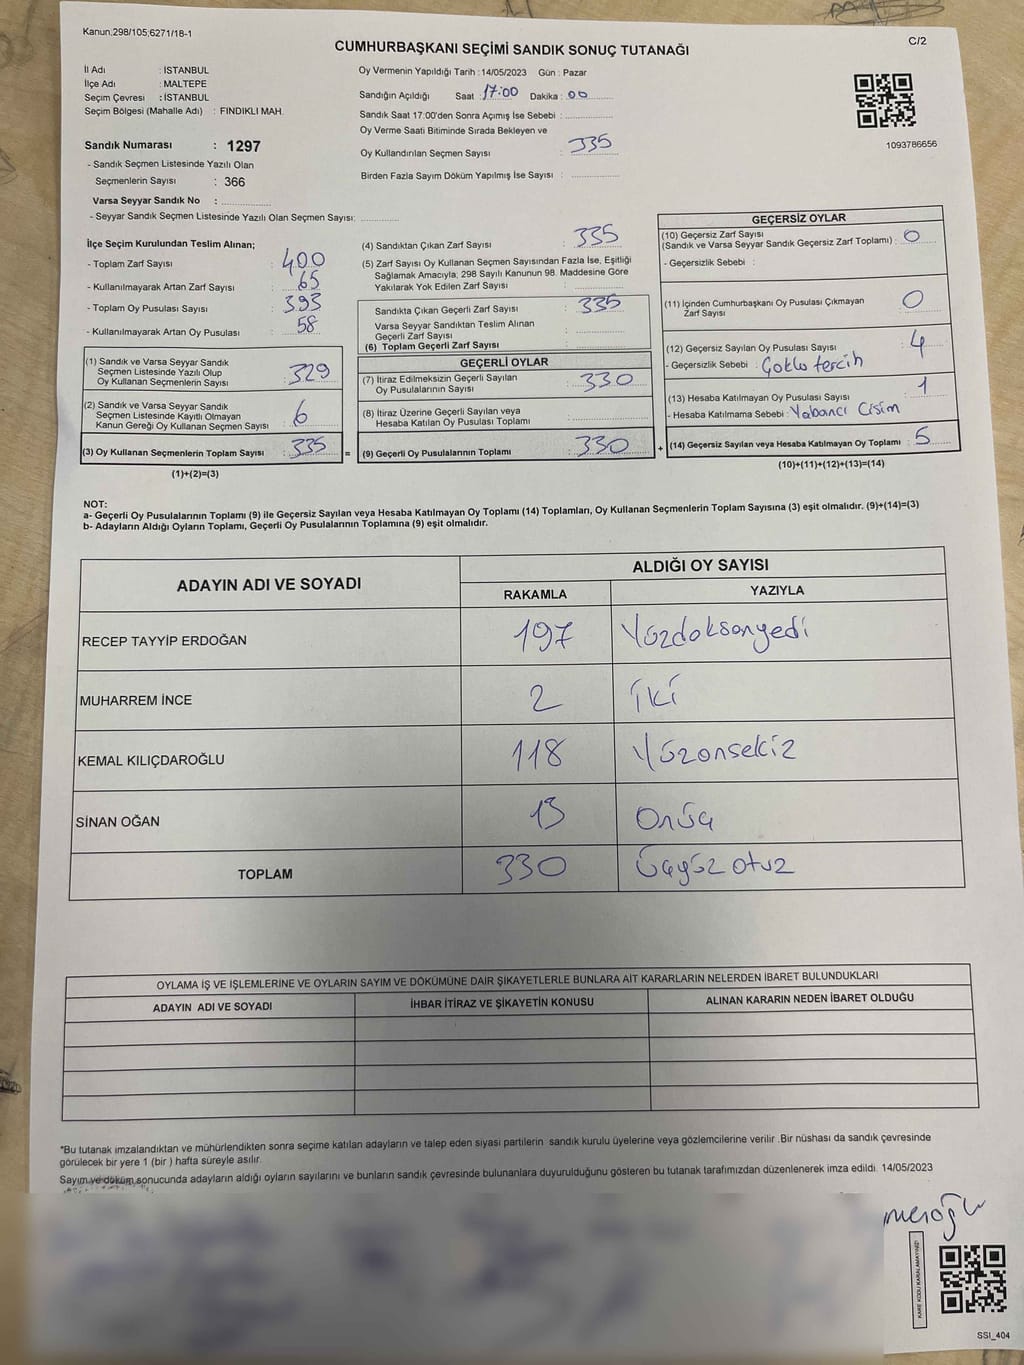 Kanun;298/105;6271/18-1
C/2
CUMHURBAŞKANI SEÇİMİ SANDIK SONUÇ TUTANAĞI
İl Adı : İSTANBUL
İlçe Adı : MALTEPE
Seçim Çevresi : İSTANBUL
Seçim Bölgesi (Mahalle Adı) : FINDIKLI MAH.
Oy Vermenin Yapıldığı Tarih : 14/05/2023 Gün : Pazar
Sandığın Açıldığı Saat : 17:00 Dakika : 00
Sandık Saat 17:00'den Sonra Açımış İse Sebebi :
Oy Verme Saati Bitiminde Sırada Bekleyen ve
Oy Kullandırılan Seçmen Sayısı : 335
Birden Fazla Sayım Döküm Yapılmış İse Sayısı :
1093786656
Sandık Numarası : 1297
- Sandık Seçmen Listesinde Yazılı Olan
Seçmenlerin Sayısı : 366
Varsa Seyyar Sandık No :
- Seyyar Sandık Seçmen Listesinde Yazılı Olan Seçmen Sayısı:
İlçe Seçim Kurulundan Teslim Alınan;
- Toplam Zarf Sayısı : 400
- Kullanılmayarak Artan Zarf Sayısı : 65
- Toplam Oy Pusulası Sayısı : 393
- Kullanılmayarak Artan Oy Pusulası : 58
(1) Sandık ve Varsa Seyyar Sandık
Seçmen Listesinde Yazılı Olup
Oy Kullanan Seçmenlerin Sayısı : 329
(2) Sandık ve Varsa Seyyar Sandık
Seçmen Listesinde Kayıtlı Olmayan
Kanun Gereği Oy Kullanan Seçmen Sayısı : 6
(3) Oy Kullanan Seçmenlerin Toplam Sayısı : 335 =
(1)+(2)=(3)
(4) Sandıktan Çıkan Zarf Sayısı : 335
(5) Zarf Sayısı Oy Kullanan Seçmen Sayısından Fazla İse, Eşitliği
Sağlamak Amacıyla; 298 Sayılı Kanunun 98. Maddesine Göre
Yakılarak Yok Edilen Zarf Sayısı :
Sandıkta Çıkan Geçerli Zarf Sayısı : 335
Varsa Seyyar Sandıktan Teslim Alınan
Geçerli Zarf Sayısı :
(6) Toplam Geçerli Zarf Sayısı :
GEÇERLİ OYLAR
(7) İtiraz Edilmeksizin Geçerli Sayılan
Oy Pusulalarının Sayısı : 330
(8) İtiraz Üzerine Geçerli Sayılan veya
Hesaba Katılan Oy Pusulası Toplamı :
(9) Geçerli Oy Pusulalarının Toplamı : 330 +
GEÇERSİZ OYLAR
(10) Geçersiz Zarf Sayısı
(Sandık ve Varsa Seyyar Sandık Geçersiz Zarf Toplamı) : 0
- Geçersizlik Sebebi :
(11) İçinden Cumhurbaşkanı Oy Pusulası Çıkmayan
Zarf Sayısı : 0
(12) Geçersiz Sayılan Oy Pusulası Sayısı : 4
- Geçersizlik Sebebi : Çoklu tercih
(13) Hesaba Katılmayan Oy Pusulası Sayısı : 1
- Hesaba Katılmama Sebebi : Yabancı Cisim
(14) Geçersiz Sayılan veya Hesaba Katılmayan Oy Toplamı : 5
(10)+(11)+(12)+(13)=(14)
NOT:
a- Geçerli Oy Pusulalarının Toplamı (9) ile Geçersiz Sayılan veya Hesaba Katılmayan Oy Toplamı (14) Toplamları, Oy Kullanan Seçmenlerin Toplam Sayısına (3) eşit olmalıdır. (9)+(14)=(3)
b- Adayların Aldığı Oyların Toplamı, Geçerli Oy Pusulalarının Toplamına (9) eşit olmalıdır.
ADAYIN ADI VE SOYADI
ALDIĞI OY SAYISI
RAKAMLA YAZIYLA
RECEP TAYYİP ERDOĞAN 197 Yüzdoksanyedi
MUHARREM İNCE 2 iki
KEMAL KILIÇDAROĞLU 118 Yüzonsekiz
SİNAN OĞAN 13 Onüç
TOPLAM 330 Üçyüz otuz
OYLAMA İŞ VE İŞLEMLERİNE VE OYLARIN SAYIM VE DÖKÜMÜNE DAİR ŞİKAYETLERLE BUNLARA AİT KARARLARIN NELERDEN İBARET BULUNDUKLARI
ADAYIN ADI VE SOYADI İHBAR İTİRAZ VE ŞİKAYETİN KONUSU ALINAN KARARIN NEDEN İBARET OLDUĞU
*Bu tutanak imzalandıktan ve mühürlendikten sonra seçime katılan adayların ve talep eden siyasi partilerin sandık kurulu üyelerine veya gözlemcilerine verilir .Bir nüshası da sandık çevresinde
görülecek bir yere 1 (bir ) hafta süreyle asılır.
Sayım ve döküm sonucunda adayların aldığı oyların sayılarını ve bunların sandık çevresinde bulunanlara duyurulduğunu gösteren bu tutanak tarafımızdan düzenlenerek imza edildi. 14/05/2023
meroğlu
KARE KODU KARALAMAYINIZ!
SSI_404